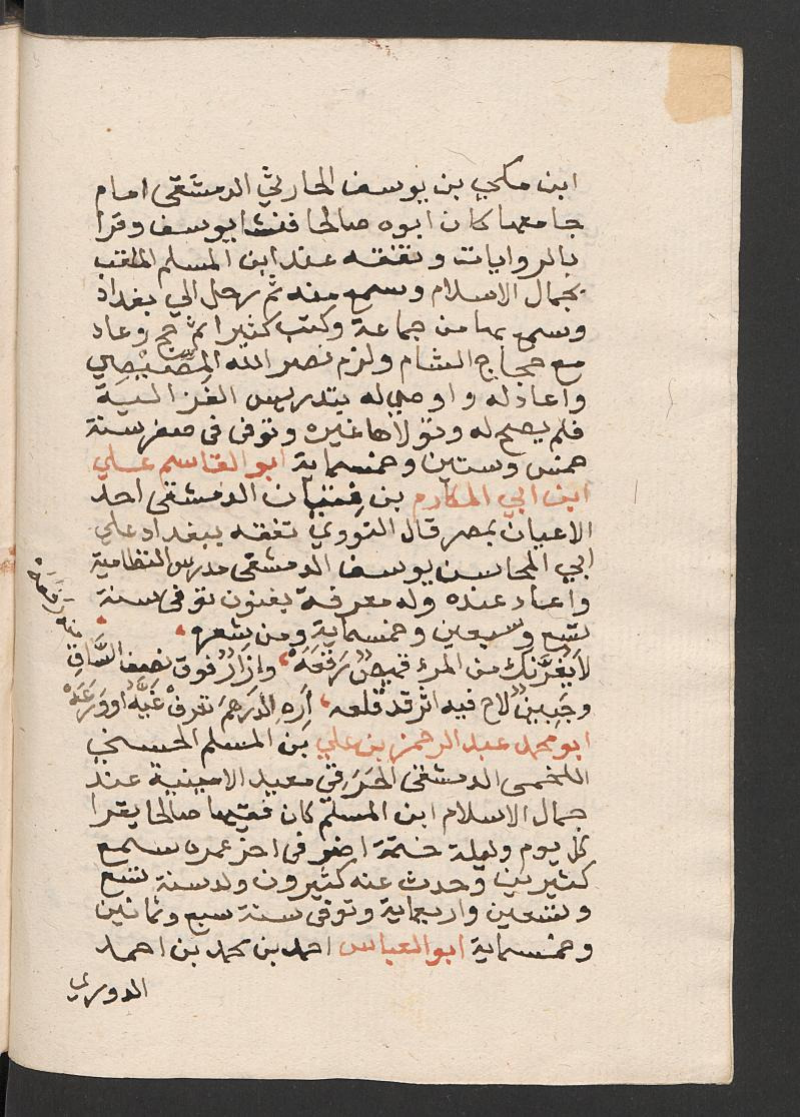 ابن مكي بن يوسف الحارثي الدمشقي امام
جامعها كان ابوه صالحا فنشا يوسف وقرا
بالروايات وتفقه عند ابن المسلم الملقب
بجمال الاسلام وسمع منه ثم رحل الي بغداد
وسمع بها من جماعة وكتب كثيرا ثم حج وعاد
مع حجاج الشام ولزم نصر الله المصيصي
واعاد له واوصي له بتدريس الغزالية
فلم يصح له وتولاها غيره وتوفى فى صفر سنة
خمس وستين وخمسماية ابو القاسم علي
ابن ابي المكارم بن فتيان الدمشقى احد
الاعيان بمصر قال النووي تفقه ببغداد علي
ابي المحاسن يوسف الدمشقى مدرس النظامية
واعاد عنده وله معرفة بفنون توفى سنة
تسع وسبعين وخمسماية ومن شعره
لا يَغُرَّنك من المرءِ قميصٌ رَقَعَهْ وازارٌ فوق نصف السَّاقِ
منه رَفَعَهْ
وجَبِينٌ لاح فيه اثر قد قلعه اَرِهِ الدرهمَ تعرفْ غَيَّهُ او وَرَعَهْ
ابو محمد عبد الرحمن بن علي بن المسلم الحسني
اللخمى الدمشقى الخِرَقي معيد الامينية عند
جمال الاسلام ابن المسلم كان فقيها صالحا يقرا
كل يوم وليلة ختمة اضر فى اخر عمره سمع
كثيرين وحدث عنه كثيرون ولد سنة تسع
وتسعين واربعماية وتوفى سنة سبع وثمانين
وخمسماية ابو العباس احمد بن محمد بن احمد
الدويري